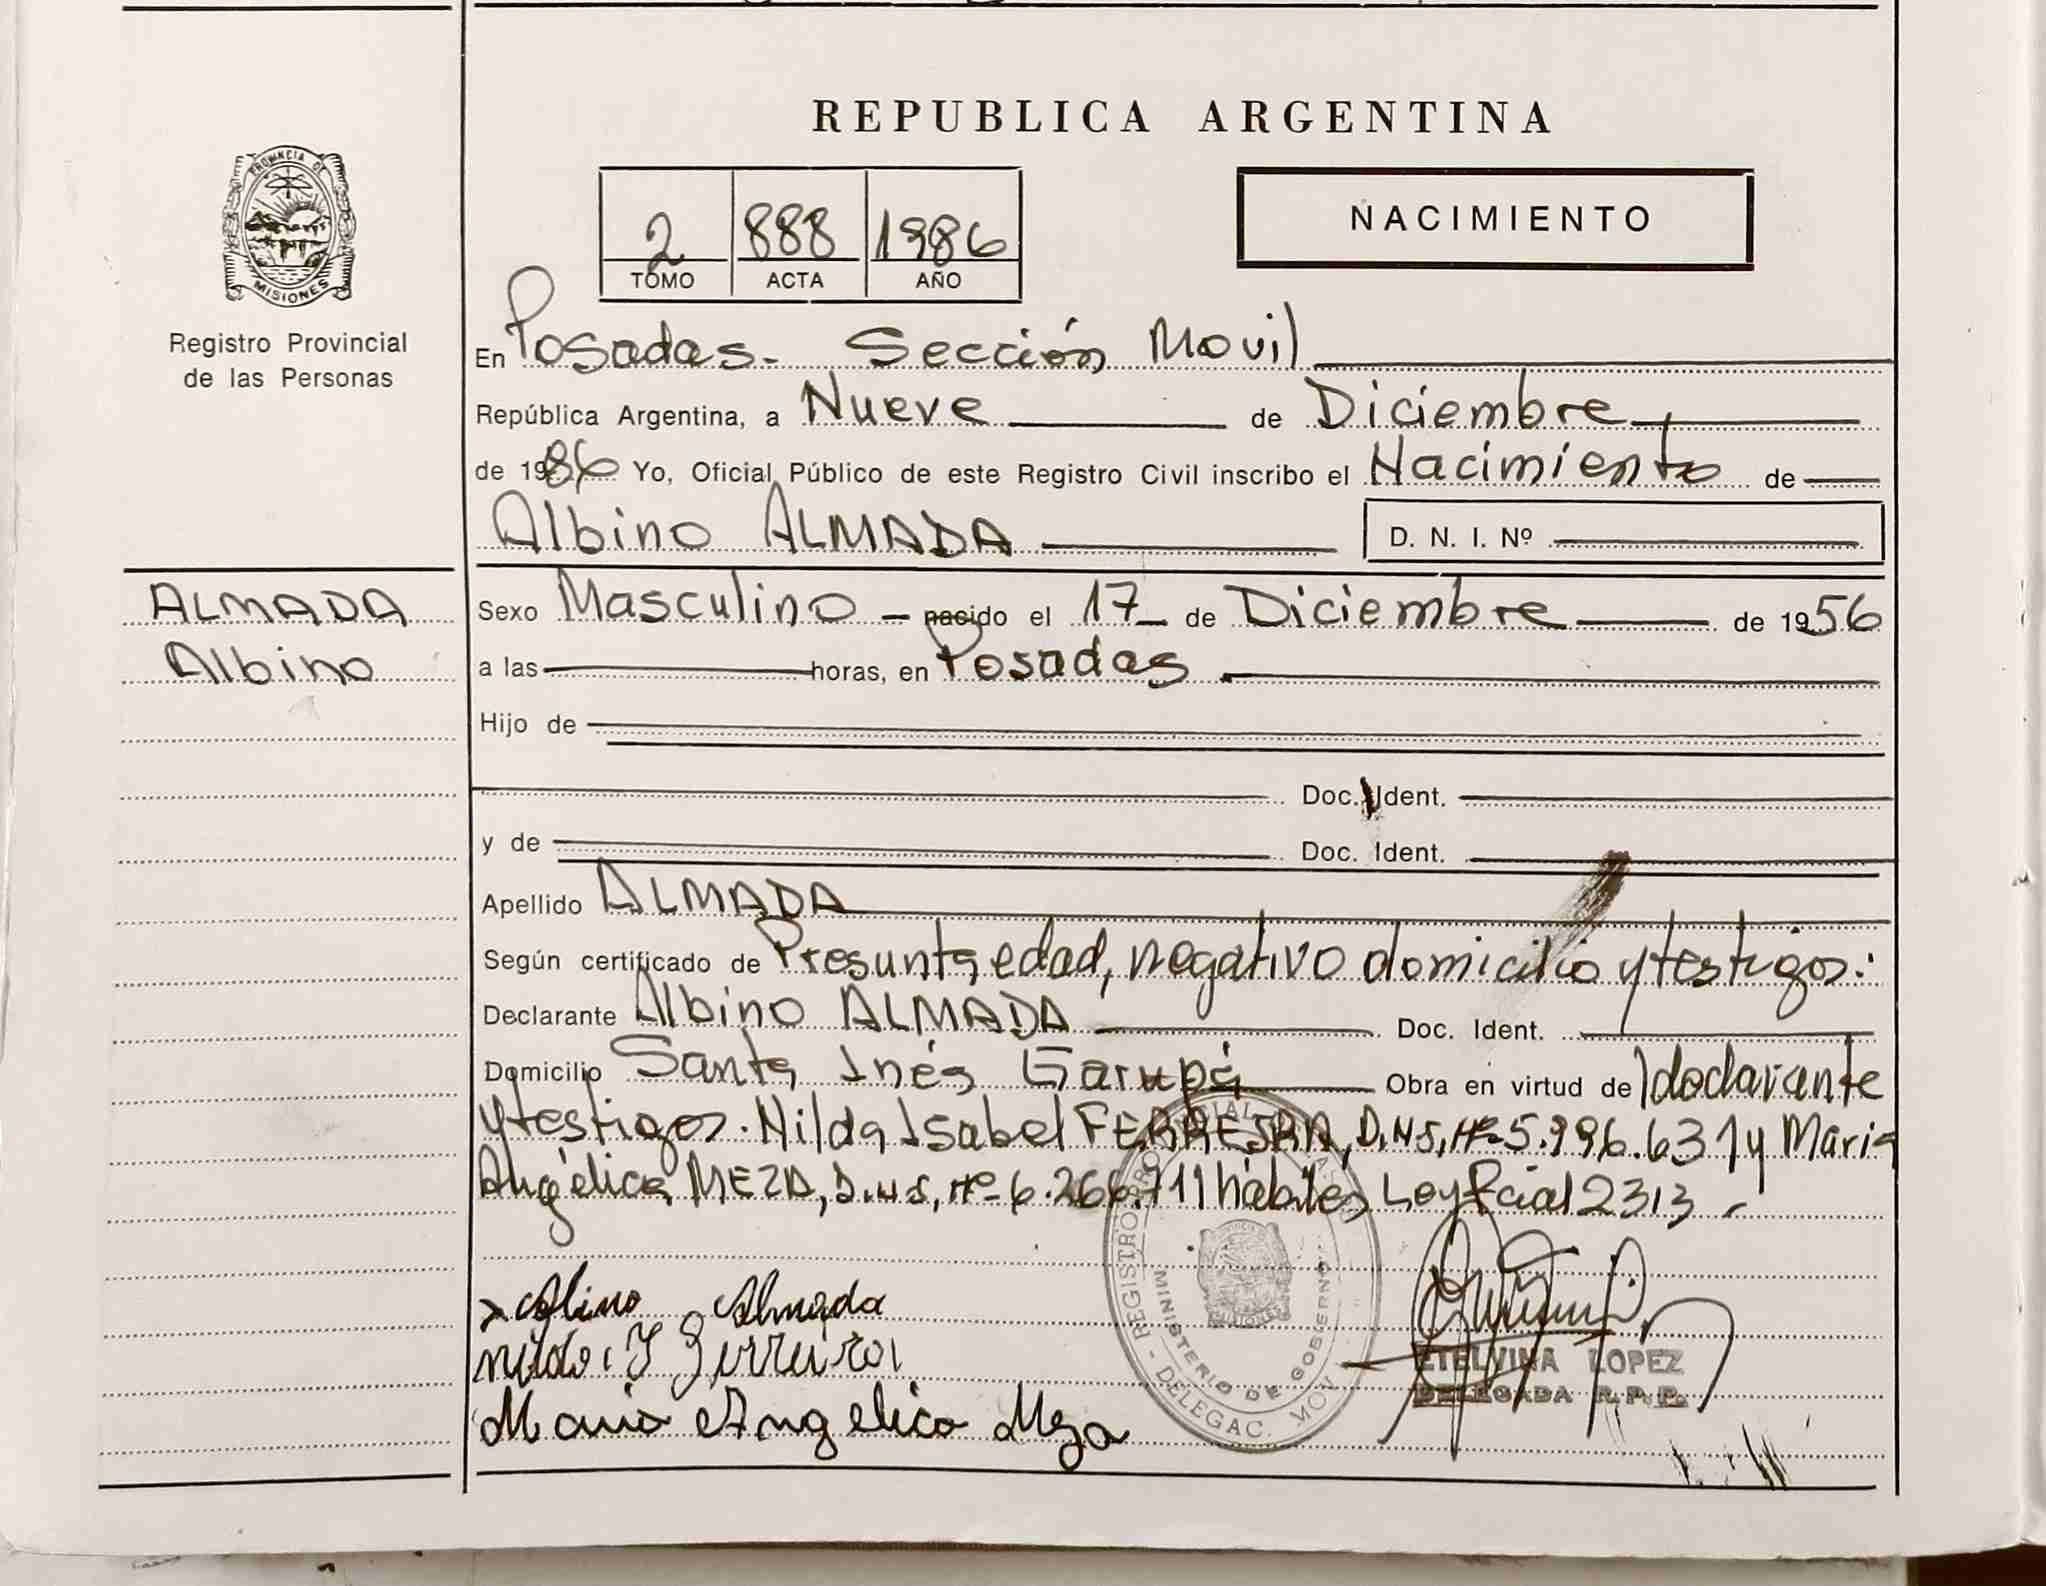 REPUBLICA ARGENTINA
PROVINCIA DE
MISIONES
Registro Provincial
de las Personas
2 888 1986
TOMO ACTA AÑO
NACIMIENTO
En Posadas - Sección Movil
República Argentina, a Nueve de Diciembre
de 1986 Yo, Oficial Público de este Registro Civil inscribo el Nacimiento de
Albino ALMADA D. N. I. Nº
ALMADA
Albino
Sexo Masculino - nacido el 17 de Diciembre de 1956
a las horas, en Posadas
Hijo de
Doc. Ident.
y de Doc. Ident.
Apellido ALMADA
Según certificado de Presunta edad, negativo domicilio y testigos:
Declarante Albino ALMADA Doc. Ident.
Domicilio Santa Inés Garupá Obra en virtud de
y testigos. Nilda Isabel FERREIRA, D.N.I, Nº 5.996.631 y Maria
Angélica MEZA, D.N.I, Nº 6.266.711 hábiles Ley 2313 -
Almada
Maria Angelica Meza
REGISTRO - DELEGAC. MOV
MINISTERIO DE GOBIERNO
ETELVINA LOPEZ
DELEGADA R.P.P.